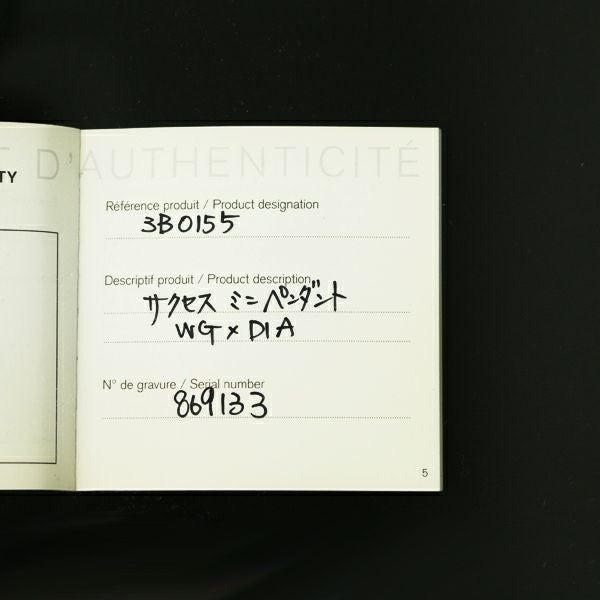 T D'AUTHENTICITÉ
TY
Référence produit / Product designation
3B0155
Descriptif produit / Product description
サクセス ミニペンダント
WG × DIA
N° de gravure / Serial number
869133
5